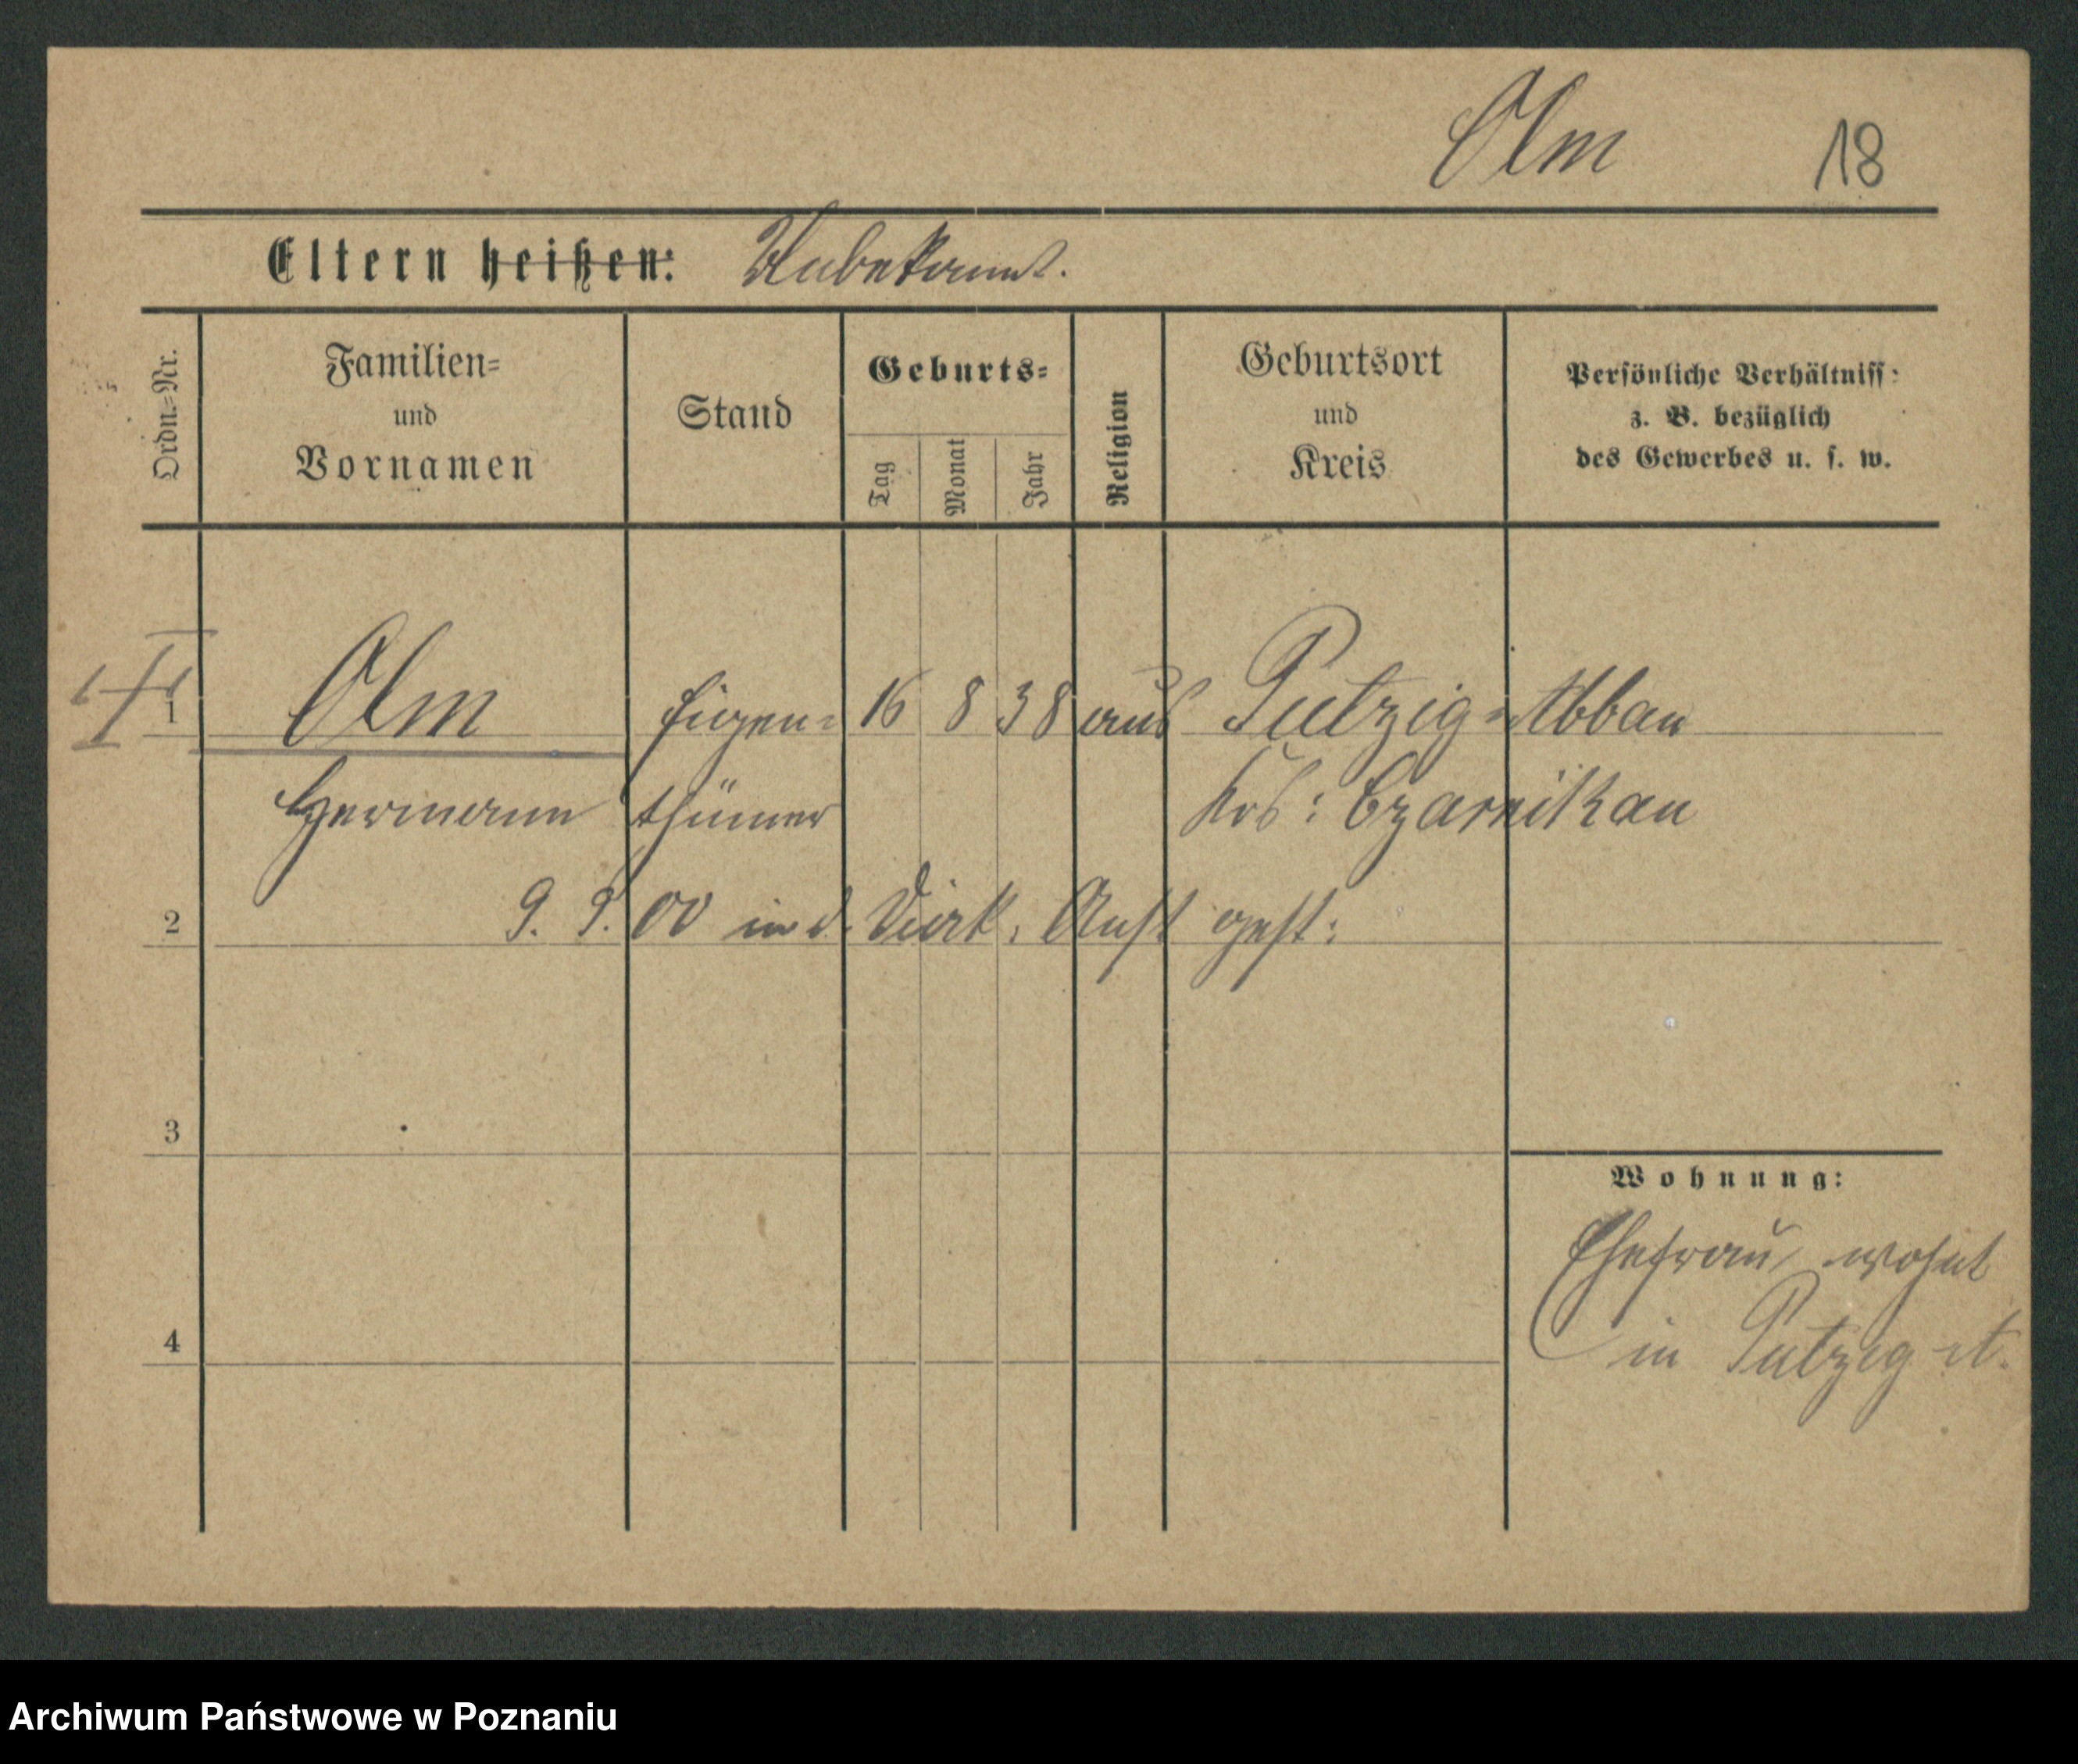 Olm 18
Eltern heißen: Unbekannt.
Ordn.=Nr.
Familien=
und
Vornamen
Stand
Geburts=
Tag
Monat
Jahr
Religion
Geburtsort
und
Kreis
Persönliche Verhältniss=
z. B. bezüglich
des Gewerbes u. s. w.
1 Olm Eigen= 16 8 38 aus Putzig=Abbau
Hermann thümer Krs: Czarnikau
2 9. 9. 00 in d. Diak. Anst gest:
3
Wohnung:
Ehefrau wohnt
4 in Putzig A.
Archiwum Państwowe w Poznaniu